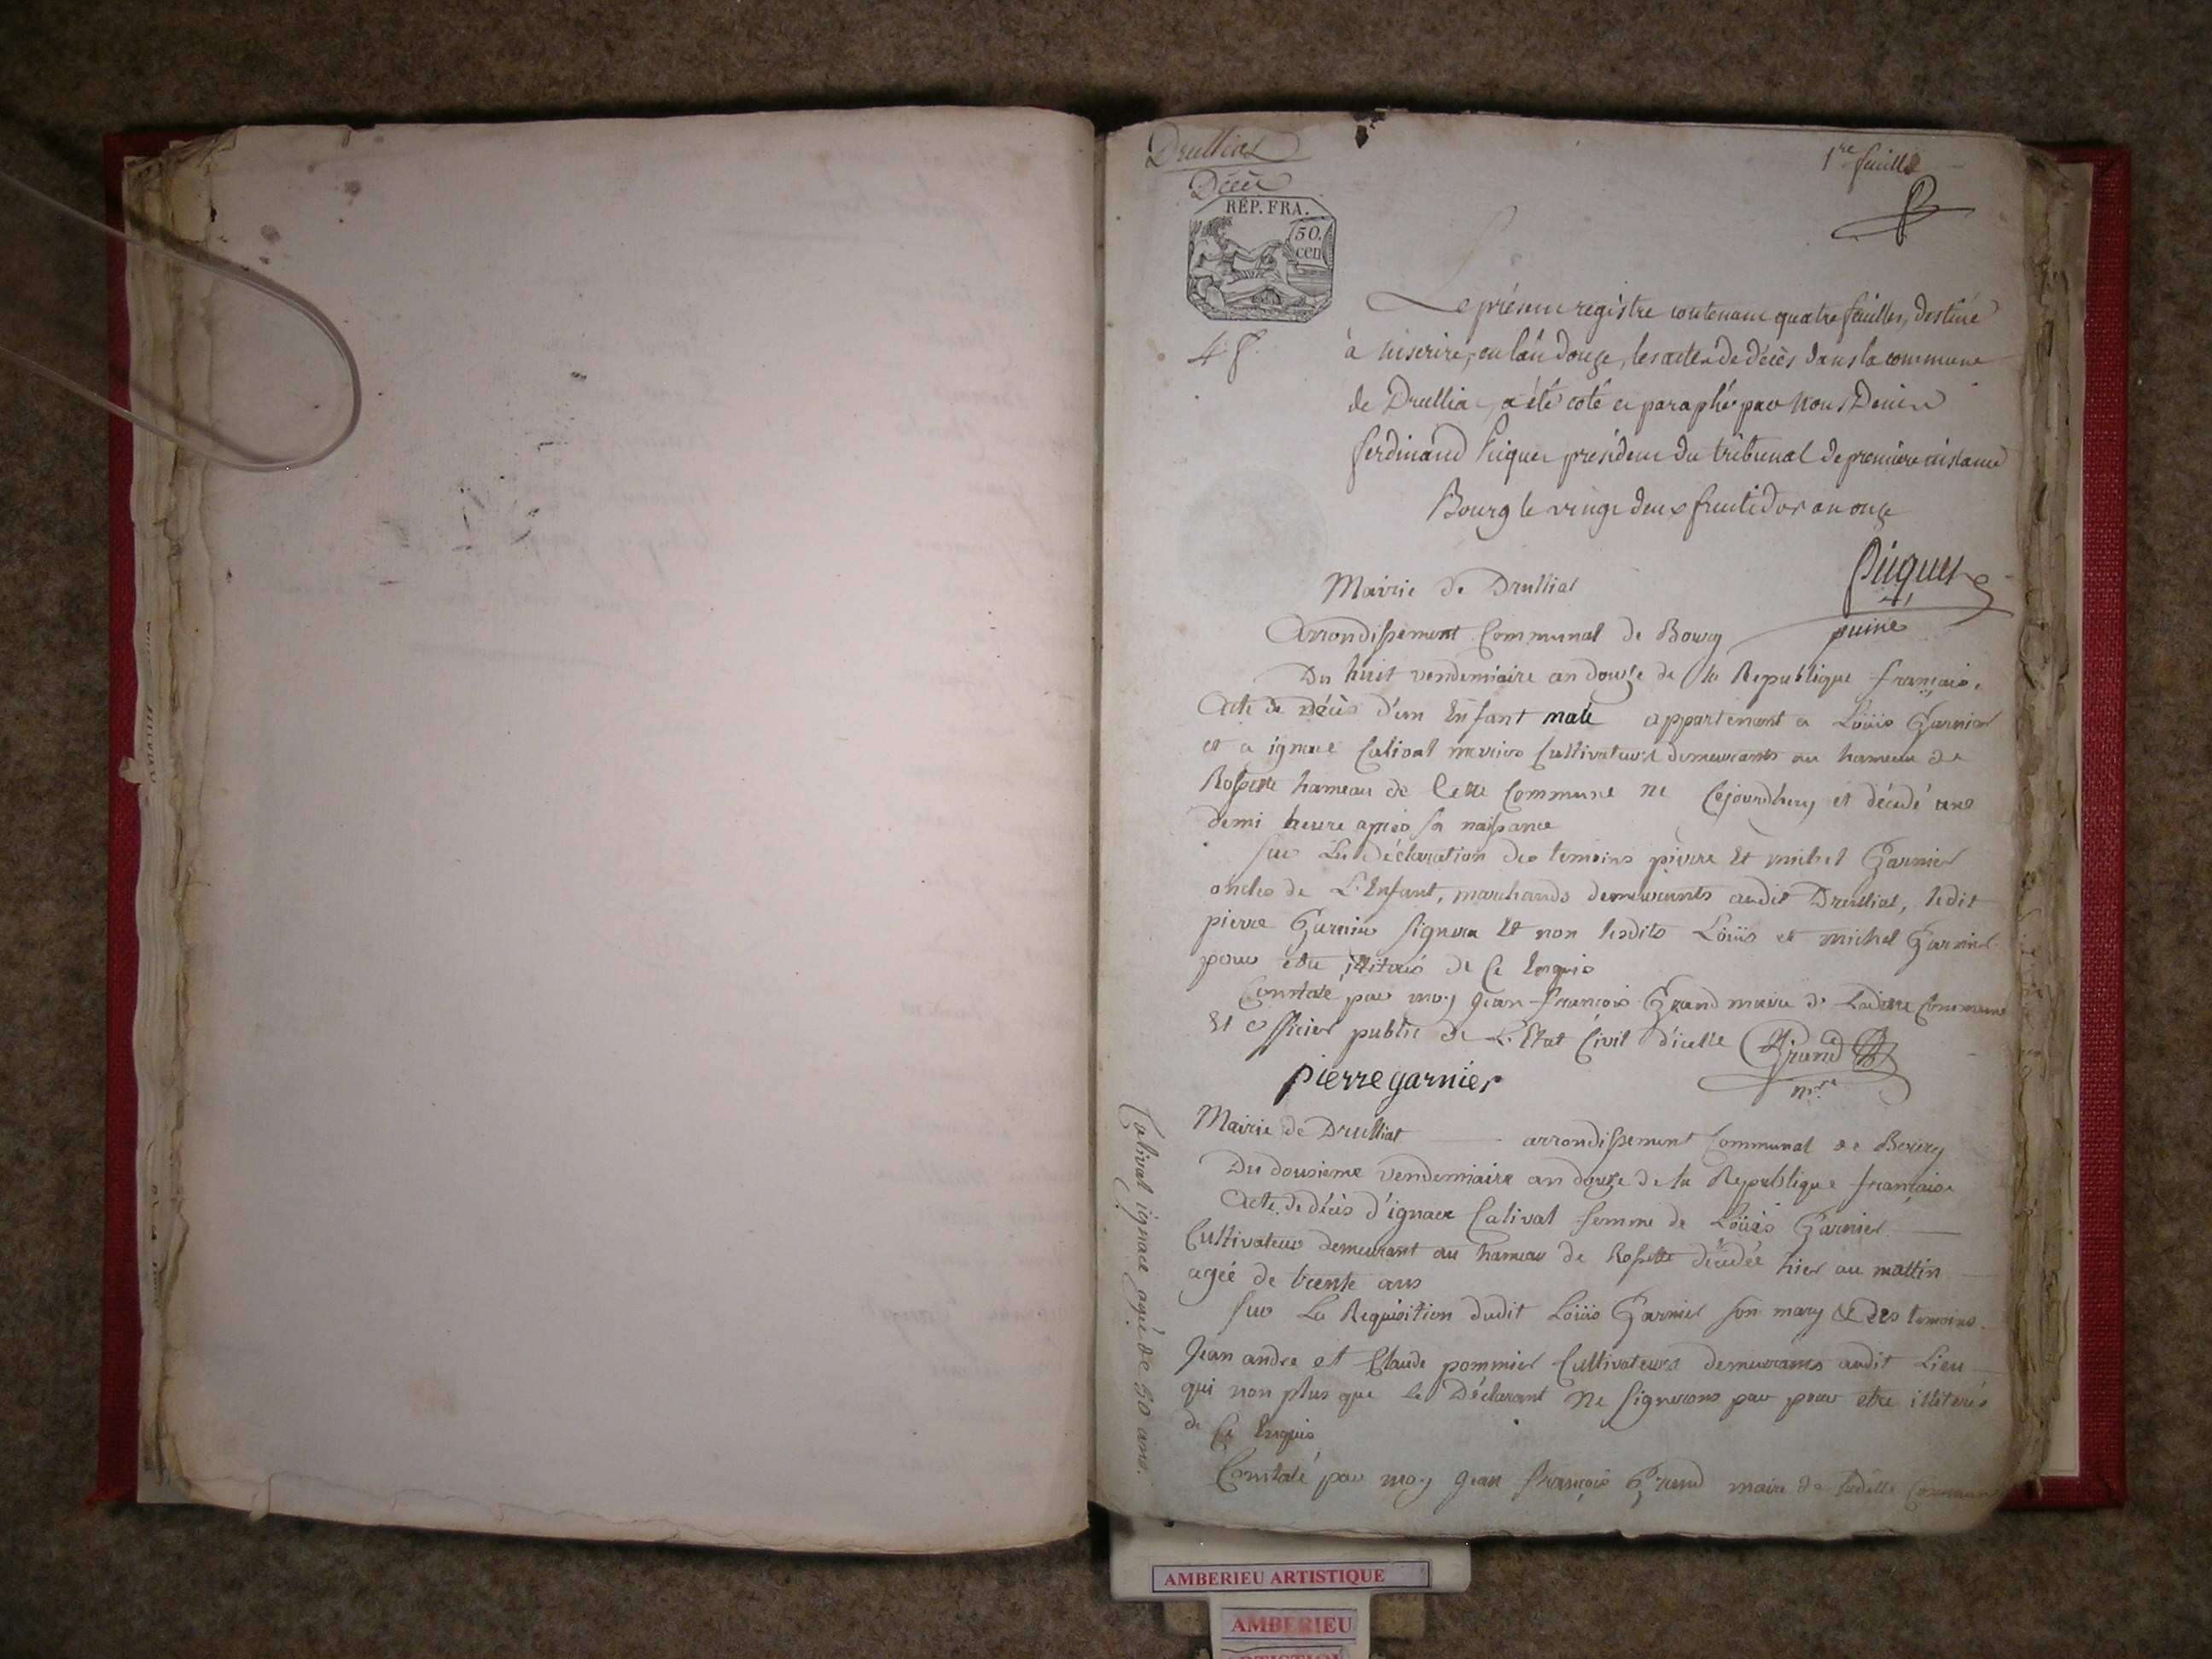 Drulliat
Décès
1re feuille
RÉP. FRA.
50.
cen
4 f.
Le présent registre contenant quatre feuilles, destiné
à inscrire, en l'an douze, les actes de décès dans la commune
de Drulliat, a été coté et paraphé par nous Denis
ferdinand Piquet président du tribunal de première instance
Bourg le vingt deux fructidor an onze
Piquet
puiné
Mairie de Drulliat
Arrondissement Communal de Bourg
Du huit vendemiaire an douze de la Republique française.
Acte de décès d'un Enfant male appartenant a Loüis Garnier
et a ignace Calival mariés Cultivateurs demeurants au hameau de
Rossette hameau de Cette Commune né Cejourdhuy et décédé une
demi heure après sa naissance
sur La déclaration des temoins pierre Et michel Garnier
oncles de L'Enfant, marchands demeurants audit Drulliat, ledit
pierre Garnier signera Et non lesdits Loüis et michel Garnier
pour être illiterés de Ce Enquis
Constaté par moy jean françois Grand maire de Ladite Commune
Et officier public de L'Etat Civil d'icelle Grand
mre
pierre garnier
Mairie de Drulliat arrondissement Communal de Bourg
Du dousieme vendemiaire an douze de la Republique française
Acte de décès d'ignace Calival femme de Loüis Garnier
Cultivateur demeurant au hameau de Rossette décédée hier au mattin
agée de trente ans
sur La Requisition dudit Loüis Garnier son mary & des temoins
Jean andre et Claude pommier Cultivateurs demeurants audit Lieu
qui non plus que le Déclarant Ne signerons pas pour etre illiterés
de Ce Enquis
Constaté par moy jean françois Grand maire de Ladite Commune
Calival ignace agée de 30 ans.
AMBERIEU ARTISTIQUE
AMBERIEU
ARTISTIQUE